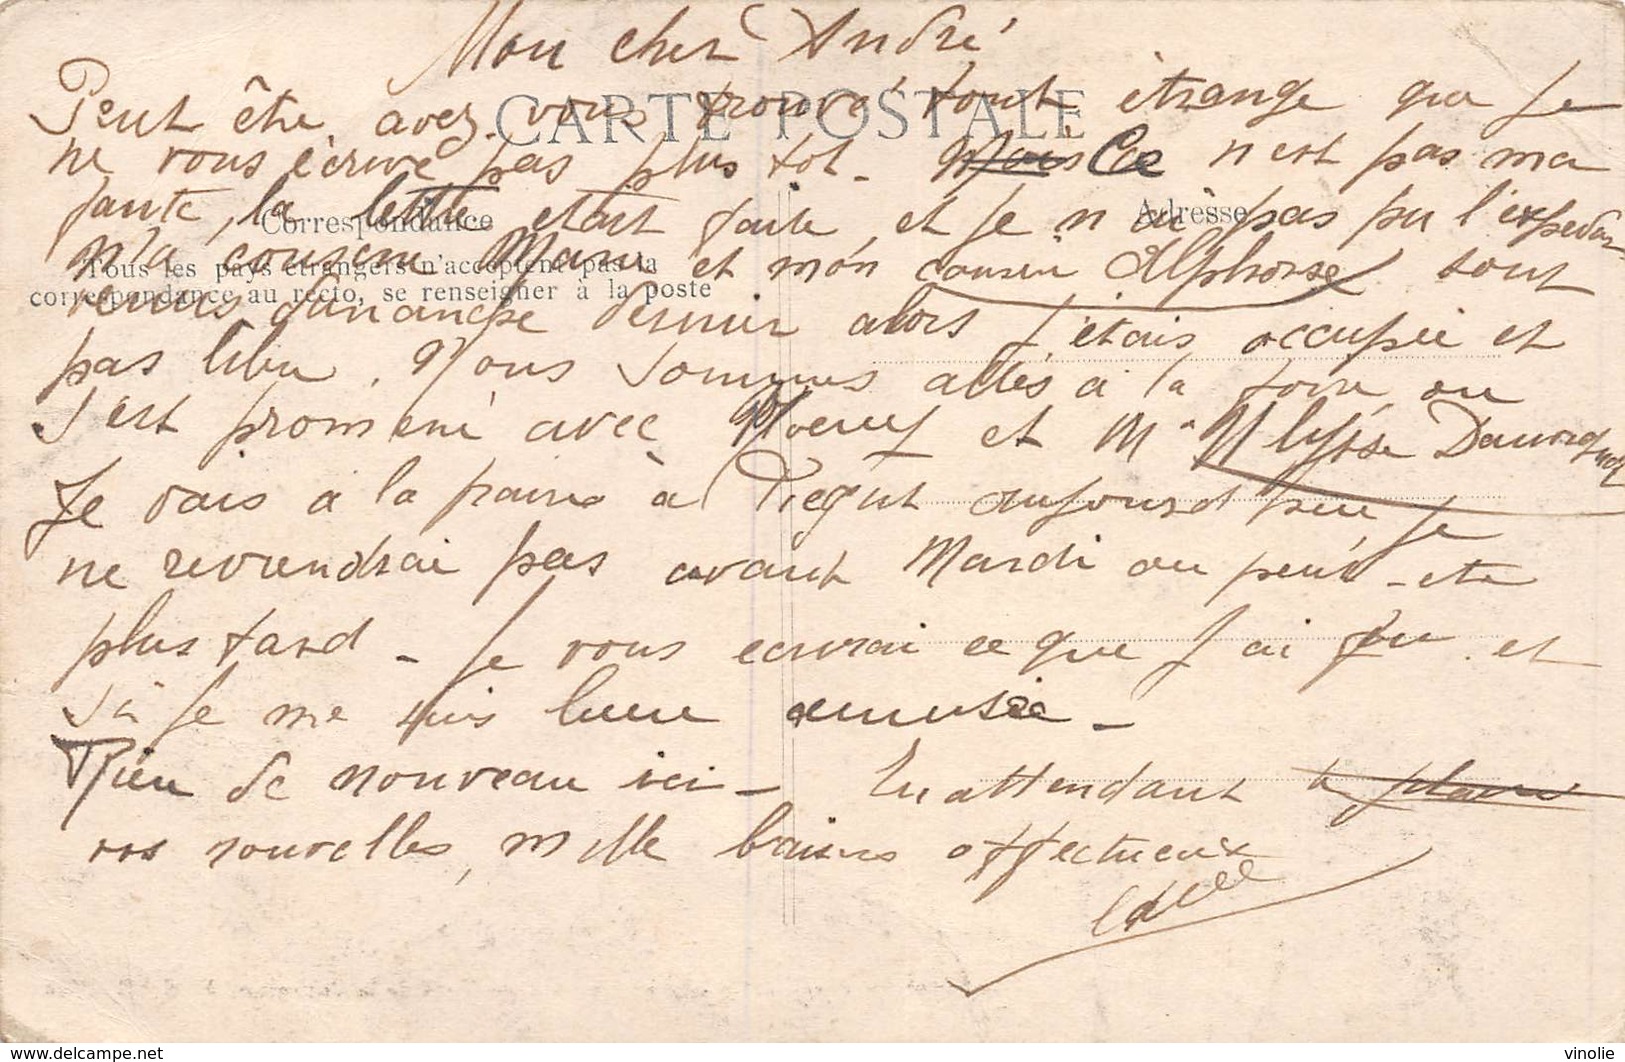 Mon cher André
CARTE POSTALE
Peut être avez vous trouvé tout étrange que je
ne vous écrive pas plus tot. Mais Ce n'est pas ma
faute, la lettre etait faite, et je n'ai pas pu l'expedier
Correspondance
Adresse
Ma cousine Marie et mon cousin Alphonse sont
Tous les pays étrangers n'acceptent pas la
correspondance au recto, se renseigner à la poste
venus dimanche dernier alors j'étais occupée et
pas libre. Nous sommes allés à la foire, on
s'est promené avec et Mr Ulysse
Je vais a la à Piégut aujourd'hui je
ne reviendrai pas avant Mardi ou peut-etre
plus tard - je vous ecrirai ce que j'ai fu et
si je me suis bien amusée -
Rien de nouveau ici - En attendant le plaisir
vos nouvelles, mille baisers affectueux
vinolie
delcampe.net